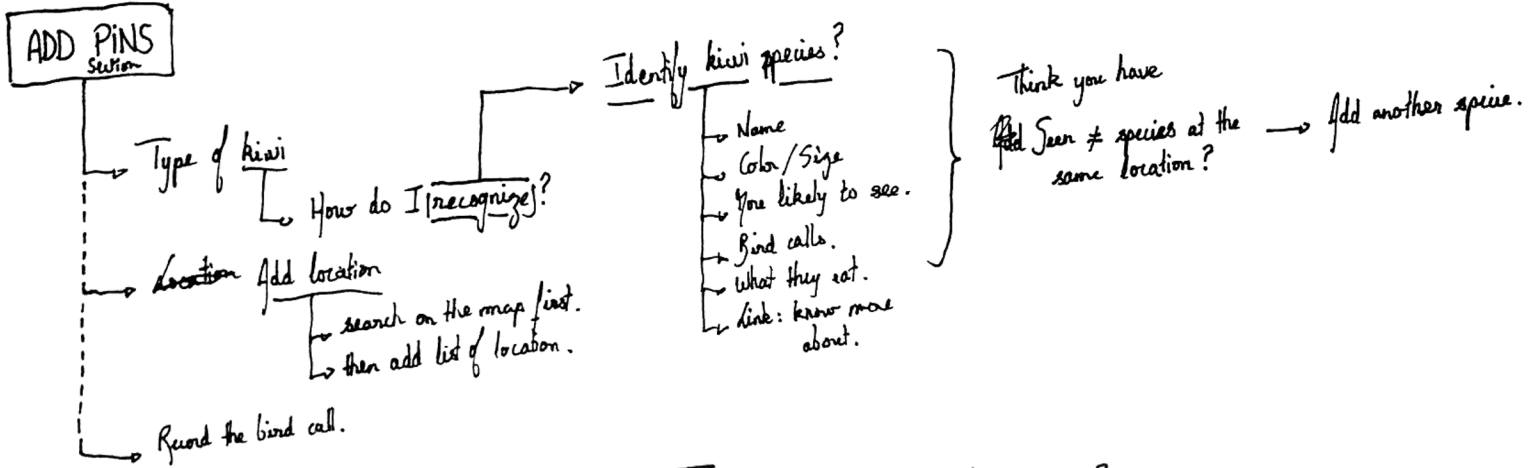 ADD PINS
Section
Type of kiwi
How do I recognize?
Location Add location
search on the map first.
then add list of location.
Record the bird call.
Identify kiwi species?
Name
Color/Size
You likely to see.
Bird calls.
What they eat.
Link: know more
about.
Think you have
Add Seen ≠ species at the
same location?
Add another specie.